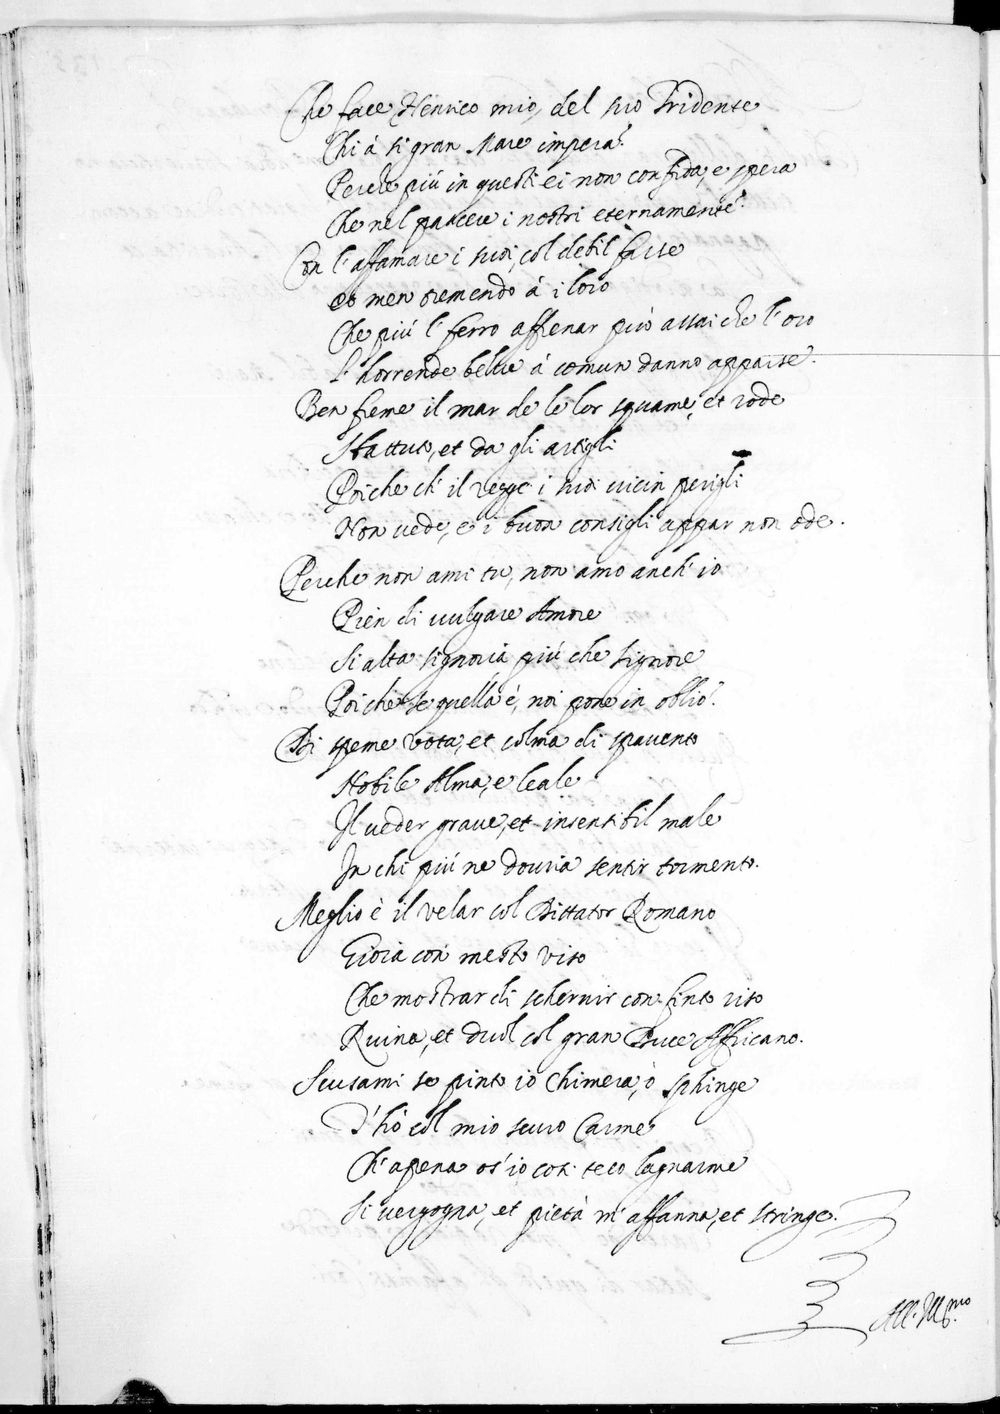 Che face Henrico mio, del suo Tridente
Chi á si gran Mare impera?
Perche piú in questi ei non confida, e spera
Che nel pascere i nostri eternamente?
Con l'affamare i suoi, col debil farse
men tremendo á i loro
Che piú l' ferro affrenar puó assai che l'oro
L'horrende belue á comun danno apparse.
Ben freme il mar de le lor squame, et rode
Sbattuto, et da gli artigli
Poiche ch' il regge i suoi vicin perigli
Non uede, e i buon consigli appar non ode.
Perche non ami tu, non amo anch'io
Pien di uulgare Amore
Si alta signoria piú che signore
Poiche se quella é, noi pone in oblio?
Di speme vota, et colma di spauento
Nobile Alma, e leale
Il ueder graue, et insensibil male
In chi piú ne douria sentir tormento.
Meglio è il velar col Dittator Romano
Gioia con mesto viso
Che mostrar di schernir con finto riso
Ruina, et duol col gran Duce Affricano.
Scusami se pinto io Chimera, ò Sphinge
T'hó col mio scuro Carme
Ch'apena os'io cosi teco lagnarme
Si uergogna, et pietà m'affanna, et stringe.
All. Ill.mo